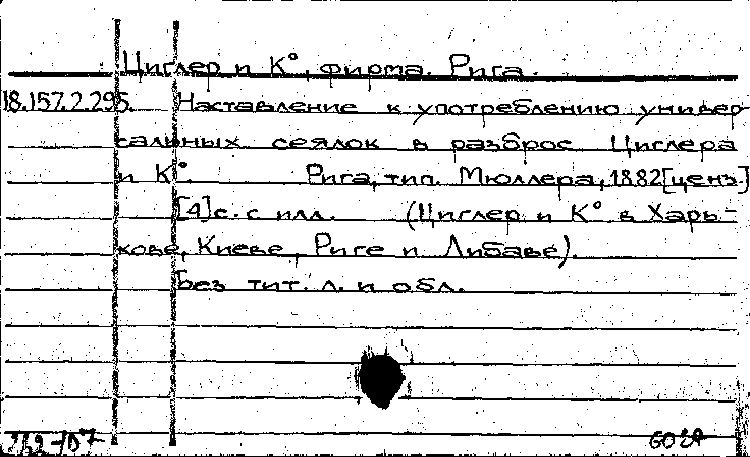 Циглер и К°, фирма. Рига.
18.157.2.295. Наставление к употреблению универ
сальных сеялок в разброс Циглера
и К°. Рига, тип. Мюллера, 1882 [ценз.]
[4]с. с илл. (Циглер и К° в Харь-
кове, Киеве, Риге и Либаве).
Без тит. л. и обл.